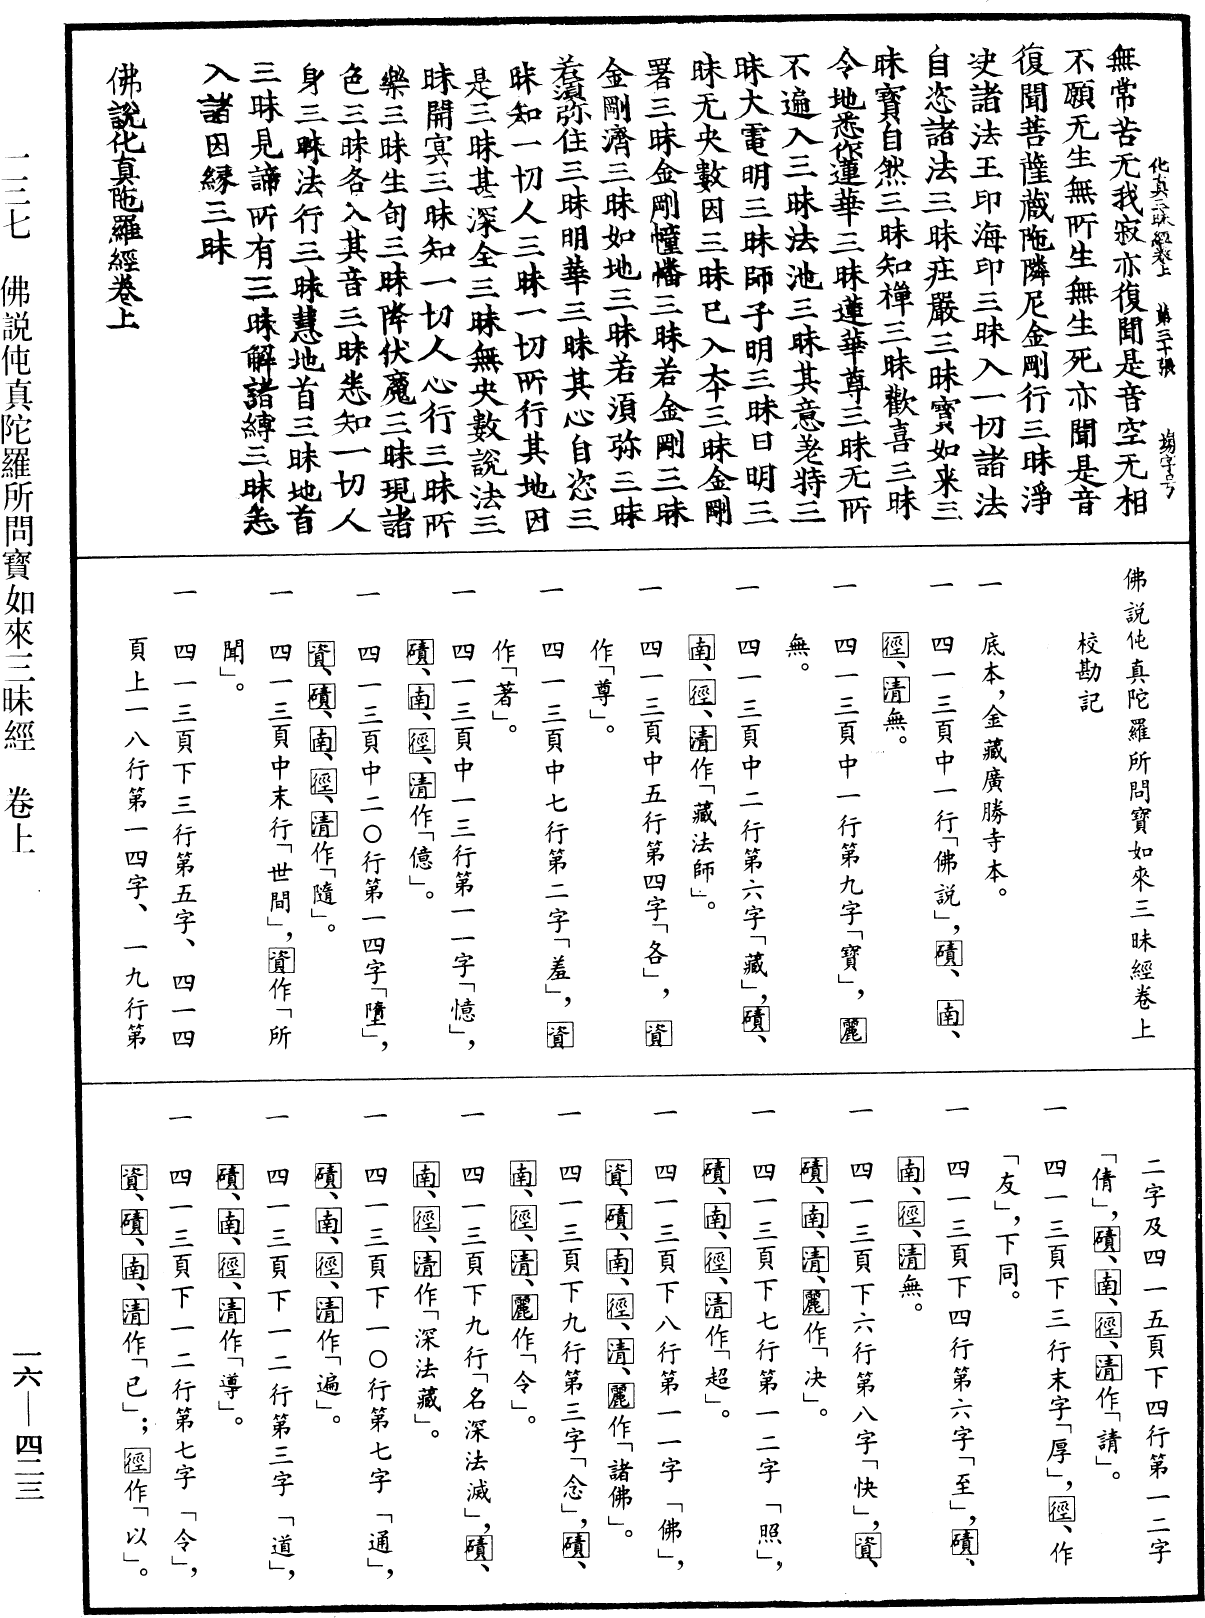 無常苦无我寂亦復聞是音空无相
不願无生無所生無生死亦聞是音
復聞菩薩藏陁隣尼金剛行三昧淨
決諸法王印海印三昧入一切諸法
自恣諸法三昧莊嚴三昧寶如来三
昧寶自然三昧知禪三昧歡喜三昧
令地悉作蓮華三昧蓮華尊三昧无所
不遍入三昧法池三昧其意老特三
昧大電明三昧師子明三昧日明三
昧无央數因三昧已入本三昧金剛
署三昧金剛幢幡三昧若金剛三昧
金剛濟三昧如地三昧若須弥三昧
若湏弥住三昧明華三昧其心自恣三
昧知一切人三昧一切所行其地因
是三昧甚深全三昧無央數說法三
昧開冥三昧知一切人心行三昧所
樂三昧生旬三昧降伏魔三昧現諸
色三昧各入其音三昧悉知一切人
身三昧法行三昧慧地首三昧地首
三昧見諦所有三昧解諸縛三昧悉
入諸因縁三昧
佛說化真陁羅經卷上
化真三昧經卷上　第三十張　場字号
佛説伅真陀羅所問寶如來三昧經卷上
校勘記
一　底本，金藏廣勝寺本。
一　四一三頁中一行「佛説」，磧、南、
徑、清無。
一　四一三頁中一行第九字「寶」，麗
無。
一　四一三頁中二行第六字「藏」，磧、
南、徑、清作「藏法師」。
一　四一三頁中五行第四字「各」，資
作「尊」。
一　四一三頁中七行第二字「羞」，資
作「著」。
一　四一三頁中一三行第一一字「憶」，
磧、南、徑、清作「億」。
一　四一三頁中二〇行第一四字「墮」，
資、磧、南、徑、清作「隨」。
一　四一三頁中末行「世間」，資作「所
聞」。
一　四一三頁下三行第五字、四一四
頁上一八行第一四字、一九行第
二字及四一五頁下四行第一二字
「倩」，磧、南、徑、清作「請」。
一　四一三頁下三行末字「厚」，徑、作
「友」，下同。
一　四一三頁下四行第六字「至」，磧、
南、徑、清無。
一　四一三頁下六行第八字「快」，資、
磧、南、清、麗作「决」。
一　四一三頁下七行第一二字「照」，
磧、南、徑、清作「超」。
一　四一三頁下八行第一一字「佛」，
資、磧、南、徑、清、麗作「諸佛」。
一　四一三頁下九行第三字「念」，磧、
南、徑、清、麗作「令」。
一　四一三頁下九行「名深法滅」，磧、
南、徑、清作「深法藏」。
一　四一三頁下一〇行第七字「通」，
磧、南、徑、清作「遍」。
一　四一三頁下一二行第三字「道」，
磧、南、徑、清作「導」。
一　四一三頁下一二行第七字「令」，
資、磧、南、清作「已」；徑作「以」。
二三七　佛説伅真陀羅所問寶如來三昧經　卷上
一六—四二三